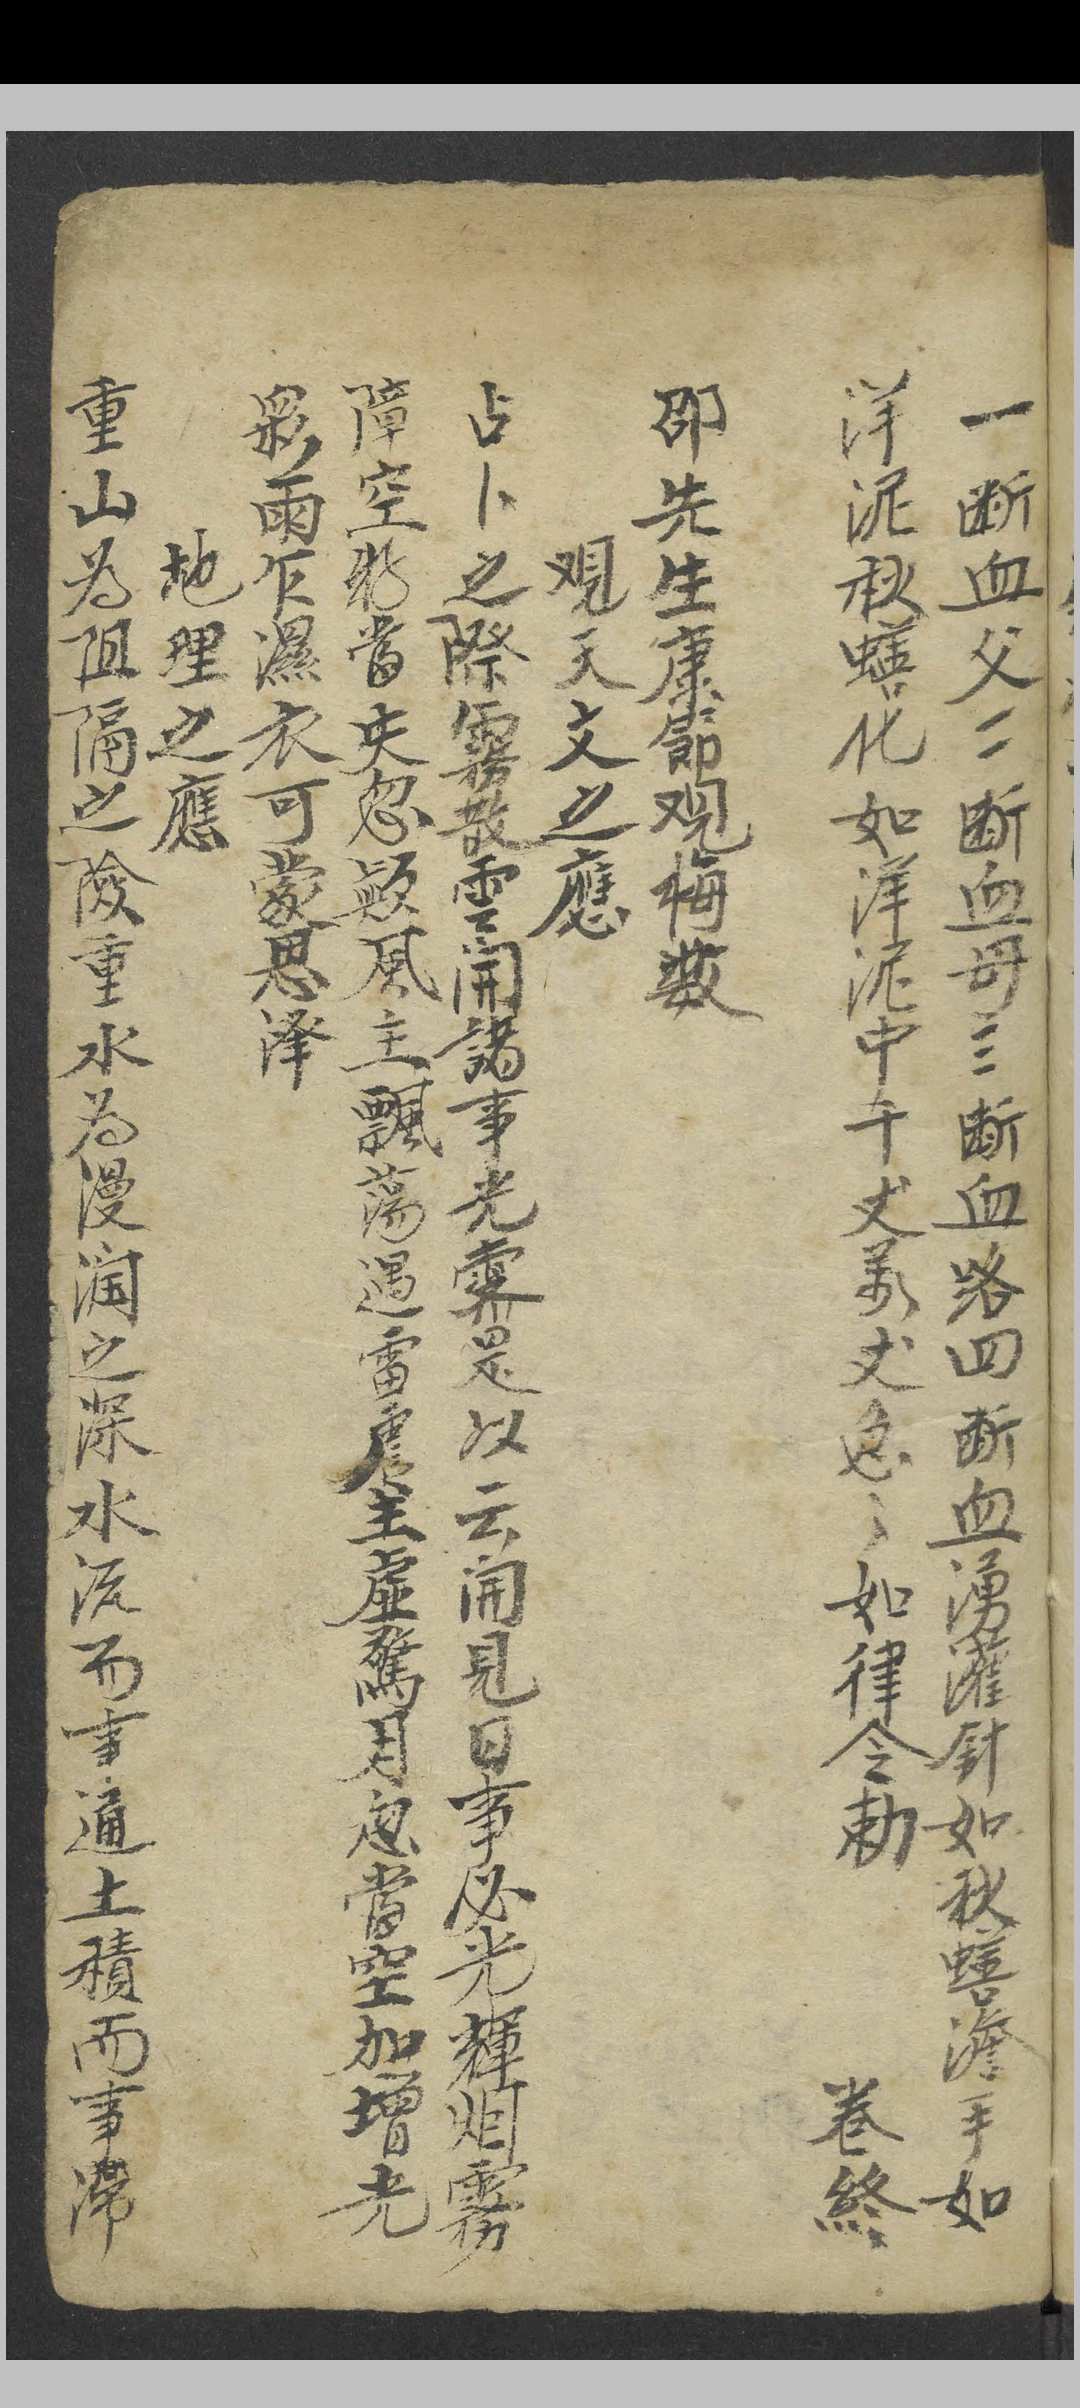 一断血父二断血母三断血路四断血湧灌針如秋蟮澹手如
洋泥秋蟮化如洋泥中千丈萬丈急〻如律令勅 卷終
邵先生康節观梅数
观天文之應
占卜之際霧散雲開諸事光霽是以云開見日事必光輝烟霧
障空物當失忽颠風主飄蕩遇雷震主虛驚月忽當空加增光
彩雨乍濕衣可蒙恩泽
地理之應
重山為阻隔之險重水為漫润之深水流而事通土積而事滞